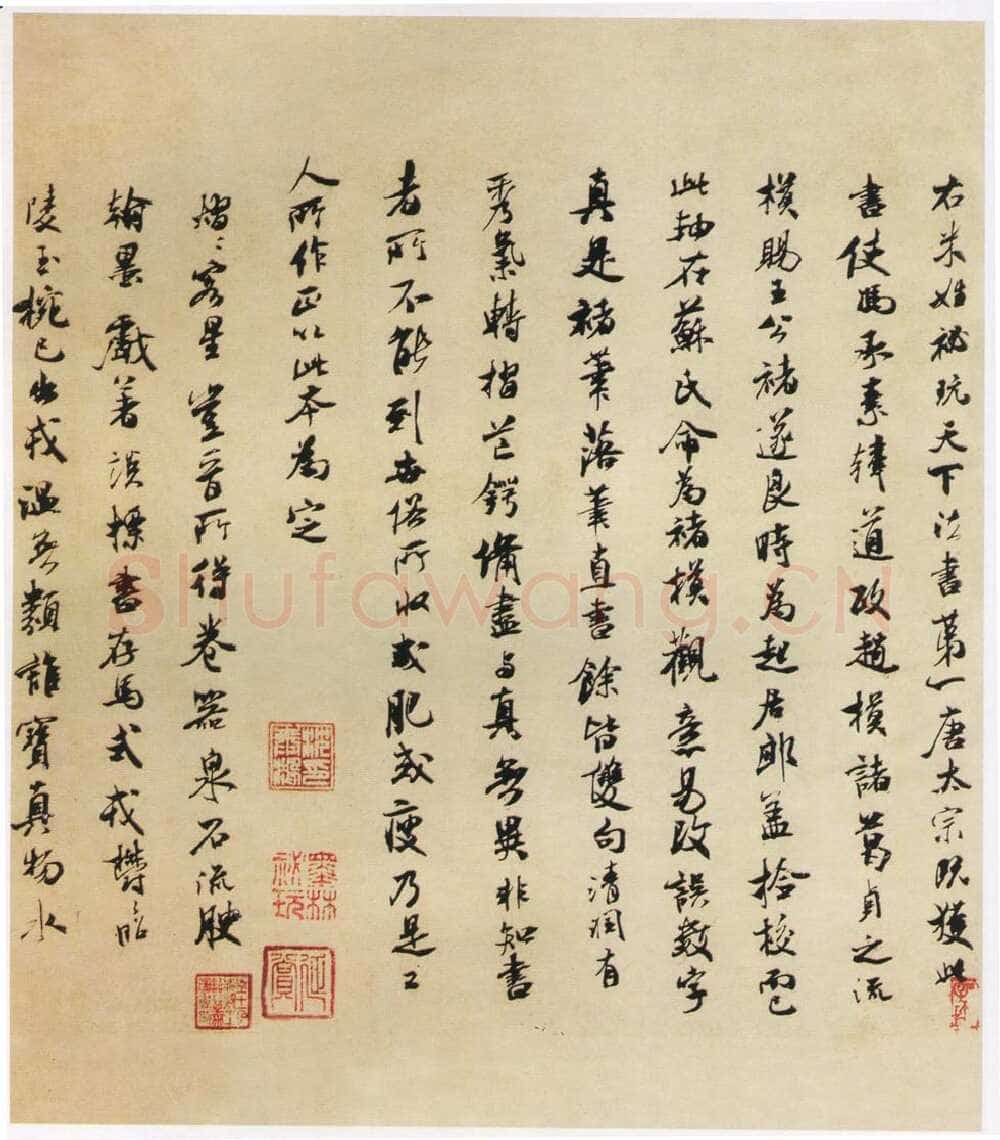 右米姓秘玩天下法書第一唐太宗既獲此
書使馮承素韓道政趙模諸葛貞之流
模賜王公褚遂良時為起居郎蓋檢校而已
此軸在蘇氏命為褚模觀意易改誤數字
真是褚筆落筆直書餘皆雙句清潤有
秀氣轉摺芒鍔備盡與真無異非知書
者所不能到世俗所收或肥或瘦乃是工
人所作正以此本為定
熠〻客星豈晉所得卷器泉石流腴
翰墨戲著談標書存馬式戎欝〻昭
陵玉椀已出戎溫無類誰寶真物水
墨林秘玩
Shufawang.CN